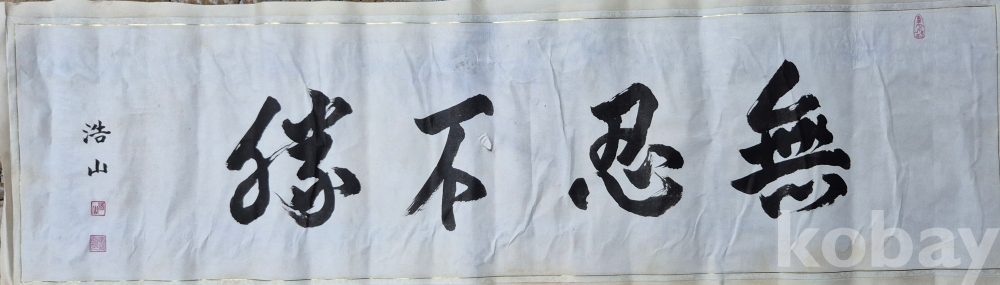 無忍不勝
浩山
kobay